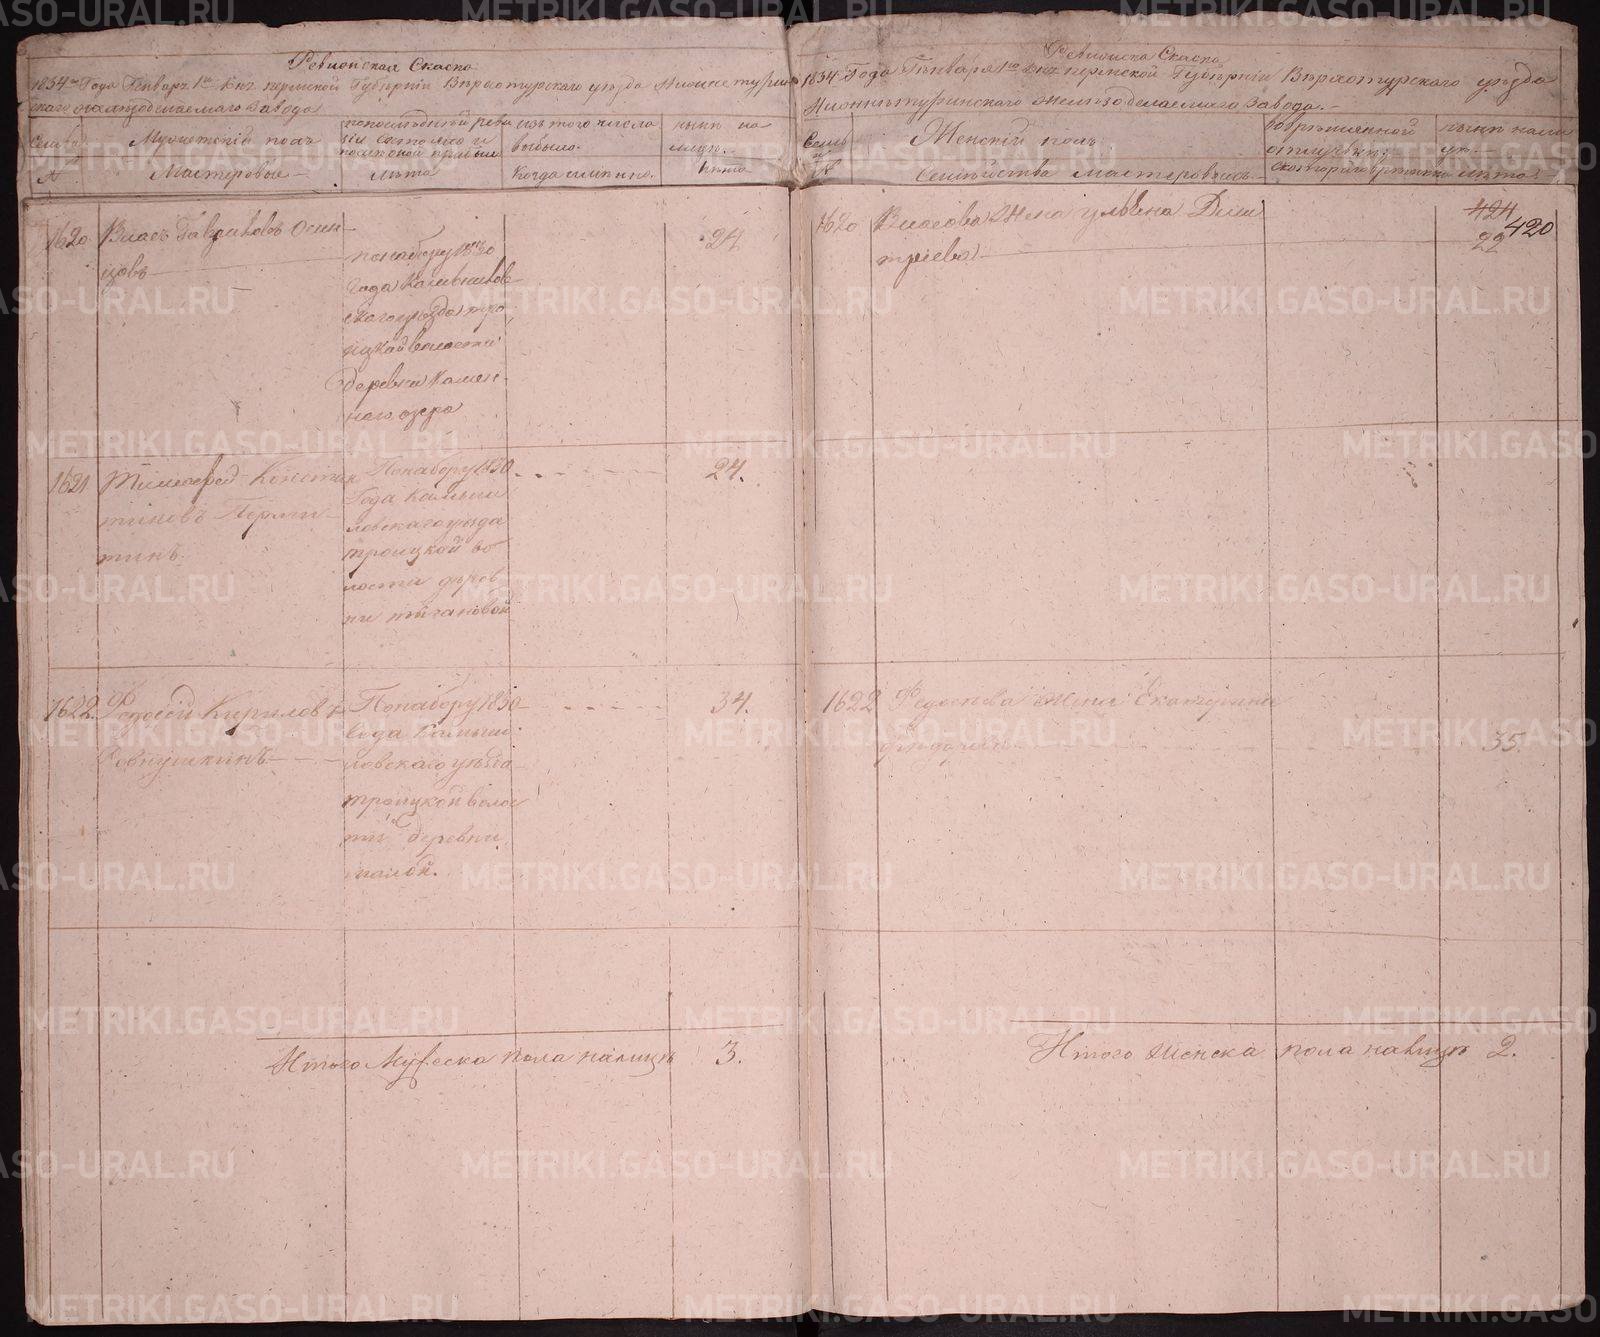 Ревизская Скаска
1834го Года Генваря 1го дня пермской Губерніи Верхотурскаго уезда Нижнетурин
скаго железоделаемаго Завода
Семьи
№
Мужескій полъ
Мастеровые
попоследней реви
зіи состояло и
лета
изъ того числа
выбыло.
Когда имянно.
ныне на
лицо.
Лета
1620 Власъ Гавриловъ Осин
цовъ
понабору 1830
года Камышлов
скаго уезда тро
ицкой волости
деревни Камен
наго озера
24.
1621. Тимофей Констан
тиновъ Перми
тинъ.
Понабору 1830
Года Камыш
ловскаго уезда
троицкой во
лости дерев
ни
24.
1622. Федосей Кириловъ
Понабору 1830
года Камыш
ловскаго уезда
троицкой волос
ти деревни
34.
Итого Мужеска пола налицо 3.
Ревизска Скаска
1834 Года Генваря 1го дня пермской Губерніи Верхотурскаго уезда
Нижнетуринскаго железоделаемаго Завода.
Семьи
№
Женскій полъ
Семейства мастеровыхъ
вовременной
отлучке
скотораго времяни
ныне нали
цо.
лета.
420
424
1620 Власова Жена Ульяна Дми
тріева
22
1622 Федосеева жена Екатерина
35.
Итого женска пола налицо 2.
METRIKI.GASO-URAL.RU